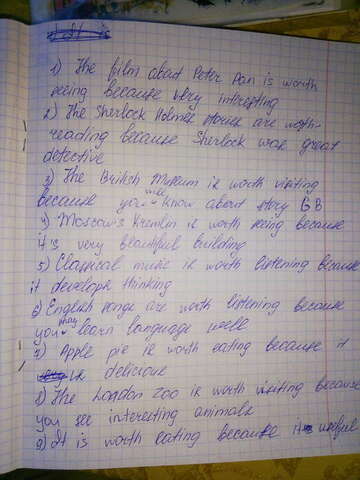 1) The film about Peter Pan is worth
seeing because very interesting
2) The Sherlock Holmes stories are worth
reading because Sherlock was great
detective
3) The British Museum is worth visiting
because you will know about story GB
4) Moscow's Kremlin is worth seeing because
it's very beautiful building
5) Classical music is worth listening because
it develops thinking
6) English songs are worth listening because
you may learn language well
7) Apple pie is worth eating because it
is delicious
8) The London Zoo is worth visiting because
you see interesting animals
9) It is worth eating because it's useful